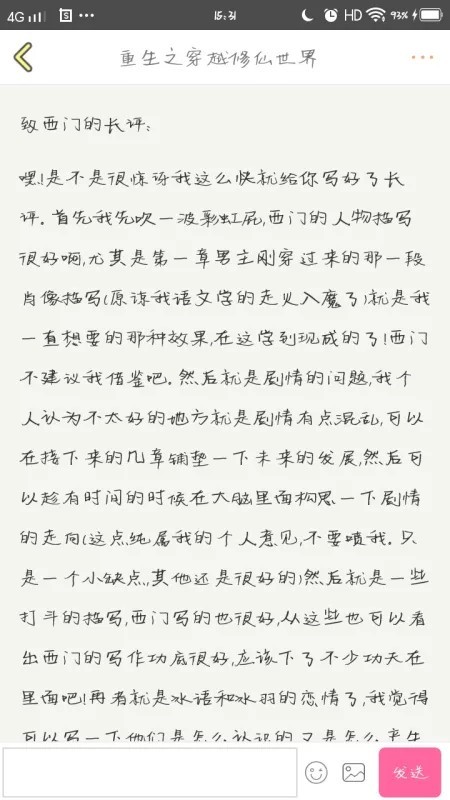 4G 15:31 HD 93%
重生之穿越修仙世界
致西门的长评:
嘿!是不是很惊讶我这么快就给你写好了长
评。首先我先吹一波彩虹屁,西门的人物描写
很好啊,尤其是第一章男主刚穿过来的那一段
肖像描写(原谅我语文学的走火入魔了)就是我
一直想要的那种效果,在这学到现成的了!西门
不建议我借鉴吧。然后就是剧情的问题,我个
人认为不太好的地方就是剧情有点混乱,可以
在接下来的几章铺垫一下未来的发展,然后可
以趁有时间的时候在大脑里面构思一下剧情
的走向(这点纯属我的个人意见,不要喷我。只
是一个小缺点,其他还是很好的)然后就是一些
打斗的描写,西门写的也很好,从这些也可以看
出西门的写作功底很好,应该下了不少功夫在
里面吧!再者就是冰语和冰羽的恋情了,我觉得
可以写一下他们是怎么认识的又是怎么产生
发送